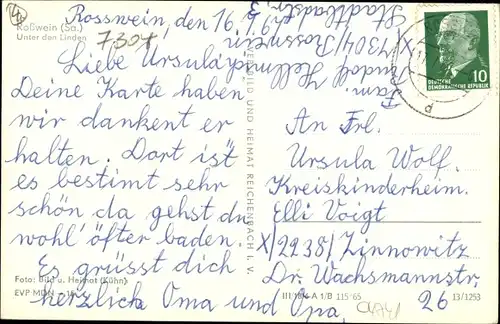 Roßwein (Sa.)
Unter den Linden
7304
Rosswein, den 16.
Liebe Ursula,
Deine Karte haben
wir dankent er
halten. Dort ist
es bestimt sehr
schön da gehst du
wohl öfter baden.
Es grüsst dich
herzlich Oma und Opa.
Foto: Bild u. Heimat (Kühn)
EVP MDN
BILD UND HEIMAT REICHENBACH I. V.
III 18 A 1/B 115/65
13/1253
Fam.
Rudolf Hellm
X/7304/Rosswein
Stadtbadstr.
10
DEUTSCHE
DEMOKRATISCHE REPUBLIK
d
An Frl.
Ursula Wolf.
Kreiskinderheim.
Elli Voigt
X/2238/Zinnowitz
Dr. Wachsmannstr.
26